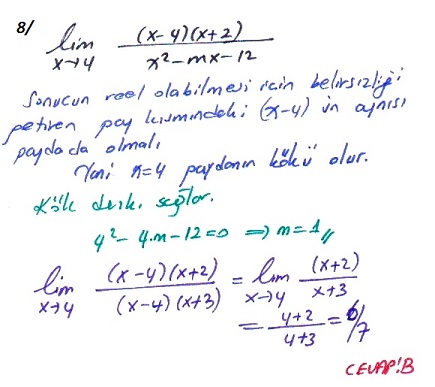 8/ lim x→4 (x-4)(x+2) / x²-mx-12
Sonucun reel olabilmesi için belirsizliği
getiren pay kısmındaki (x-4) ün aynısı
paydada olmalı
Yani x=4 paydanın kökü olur.
Kök denk. sağlar.
4²-4.m-12=0 ⇒ m=1//
lim x→4 (x-4)(x+2) / (x-4)(x+3) = lim x→4 (x+2) / x+3
= 4+2 / 4+3 = 6/7
CEVAP:B